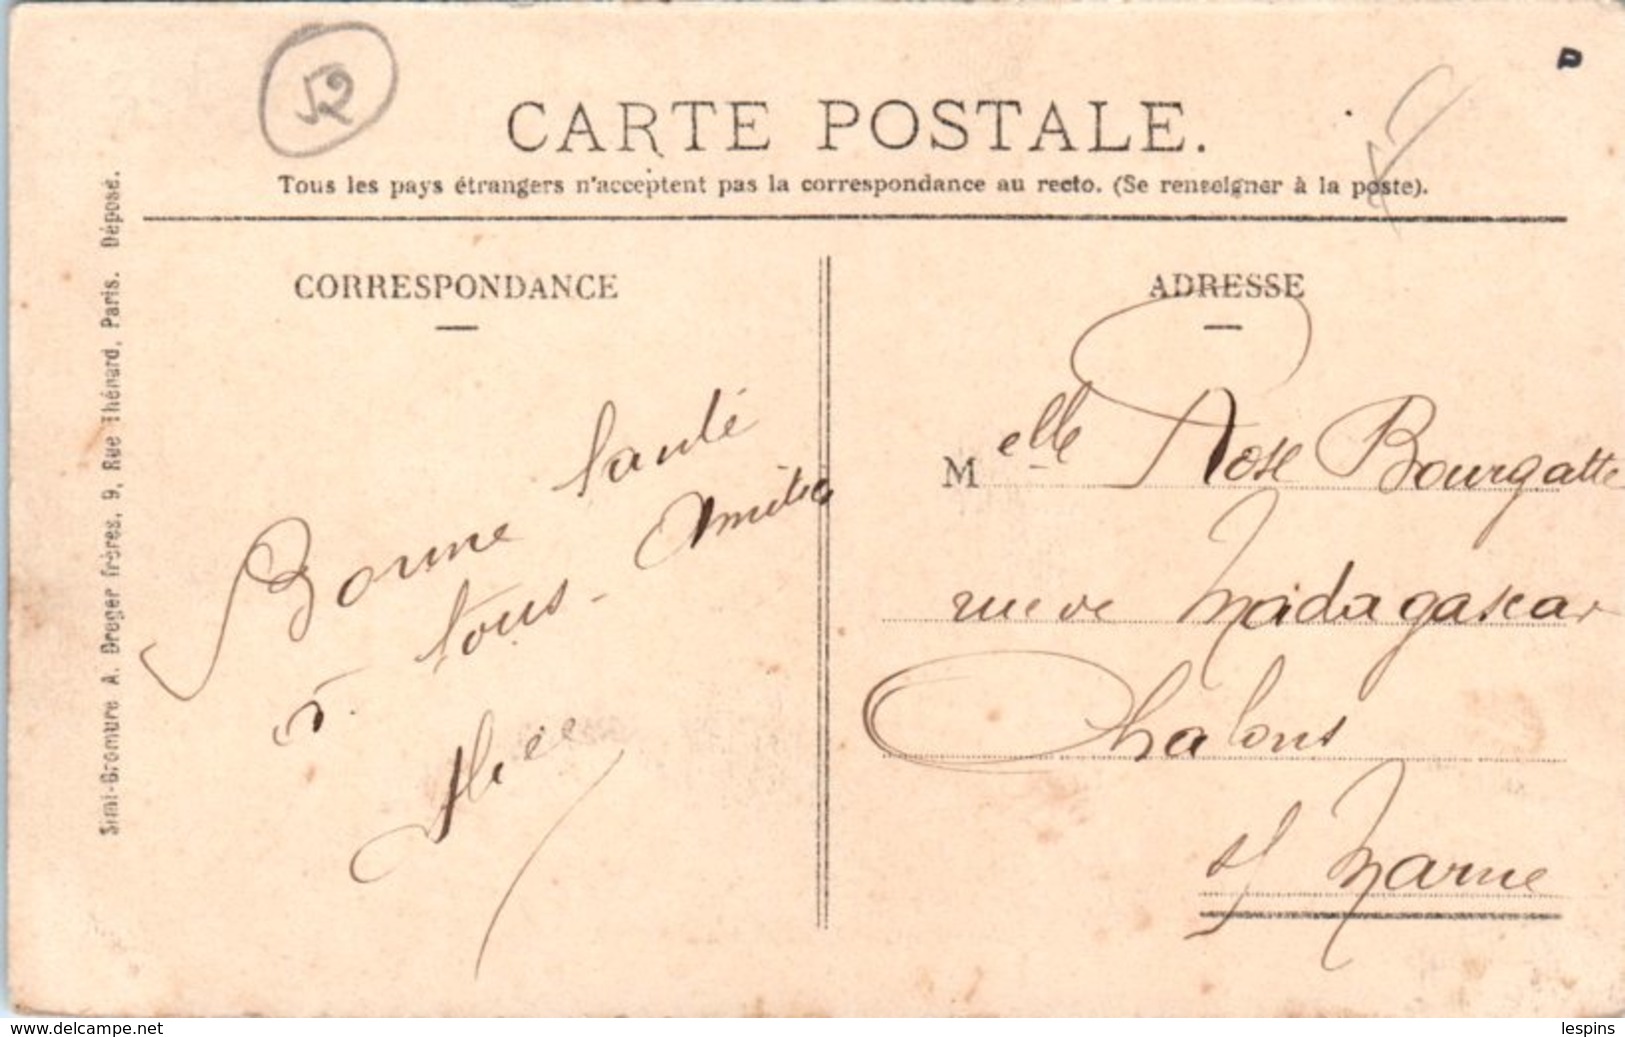 52
CARTE POSTALE.
Tous les pays étrangers n'acceptent pas la correspondance au recto. (Se renseigner à la poste).
CORRESPONDANCE
Bonne santé
à tous - Amitiés
Alice
ADRESSE
Melle Rose Bourgatte
rue de Madagascar
Chalons
s/ Marne
Simi-Bromure A. Breger frères, 9, Rue Thénard, Paris. Déposé.
www.delcampe.net
lespins